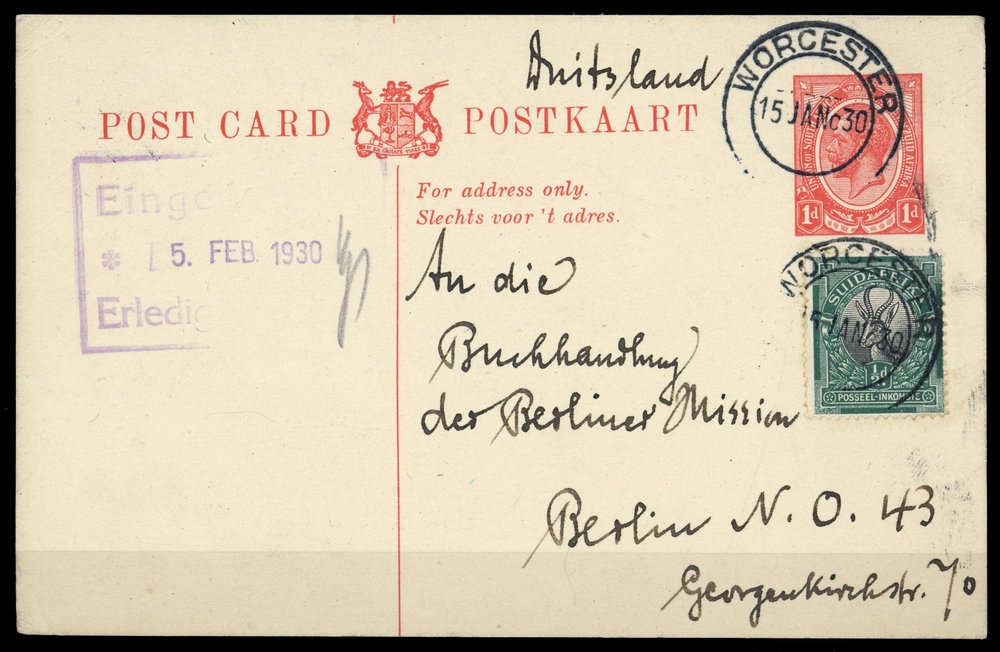 Duitsland
WORCESTER
15 JAN 30
POST CARD POSTKAART
UNION OF SOUTH AFRICA
1d 1d
For address only.
Slechts voor 't adres.
Einge
* 5. FEB. 1930
Erledig
An die
Buchhandlung
der Berliner Mission
Berlin N. O. 43
Georgenkirchstr. 70
WORCESTER
JAN 30
SUIDAFRIKA
½d
POSSEEL-INKOMSTE